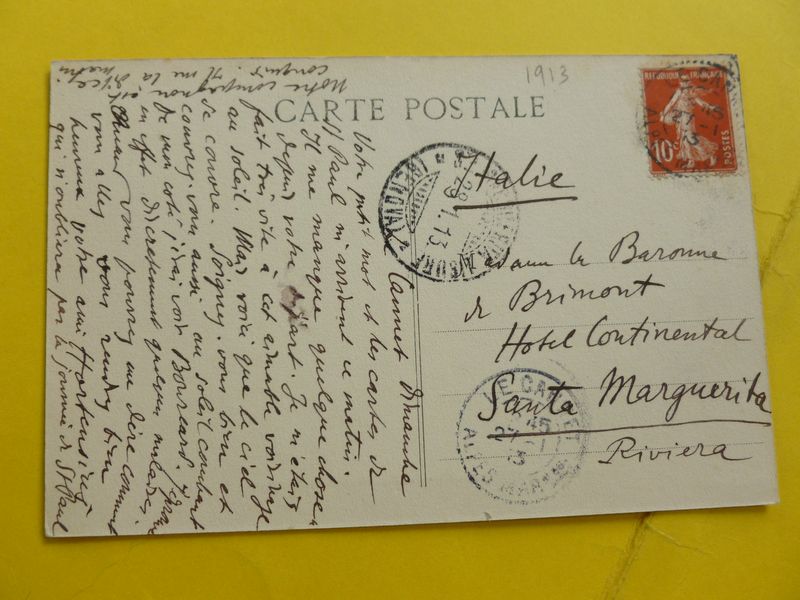 1913
CARTE POSTALE
RÉPUBLIQUE FRANÇAISE
10c
POSTES
Italie
Madame la Baronne
de Brimont
Hotel Continental
Santa Marguerita
Riviera
LE CANNET
45
27-1
13
ALPES MAR
Le Cannet Dimanche
Votre petit mot et les cartes de
St Paul m'arrivent ce matin.
Il me manque quelque chose
depuis votre départ. Je m'étais
fait très vite à cet aimable voisinage
au soleil. Mais voici que le ciel
se couvre. Soignez-vous bien et
couvrez-vous aussi au soleil couchant
De mon coté, j'ai vu Bourcard
en effet discrètement quelques malaises.
Quand vous pourrez me dire comment
vous allez vous rendrez bien
heureux votre ami
qui n'oubliera pas la journée de St Paul
Notre compagnon est
conquis. Il me la
matin